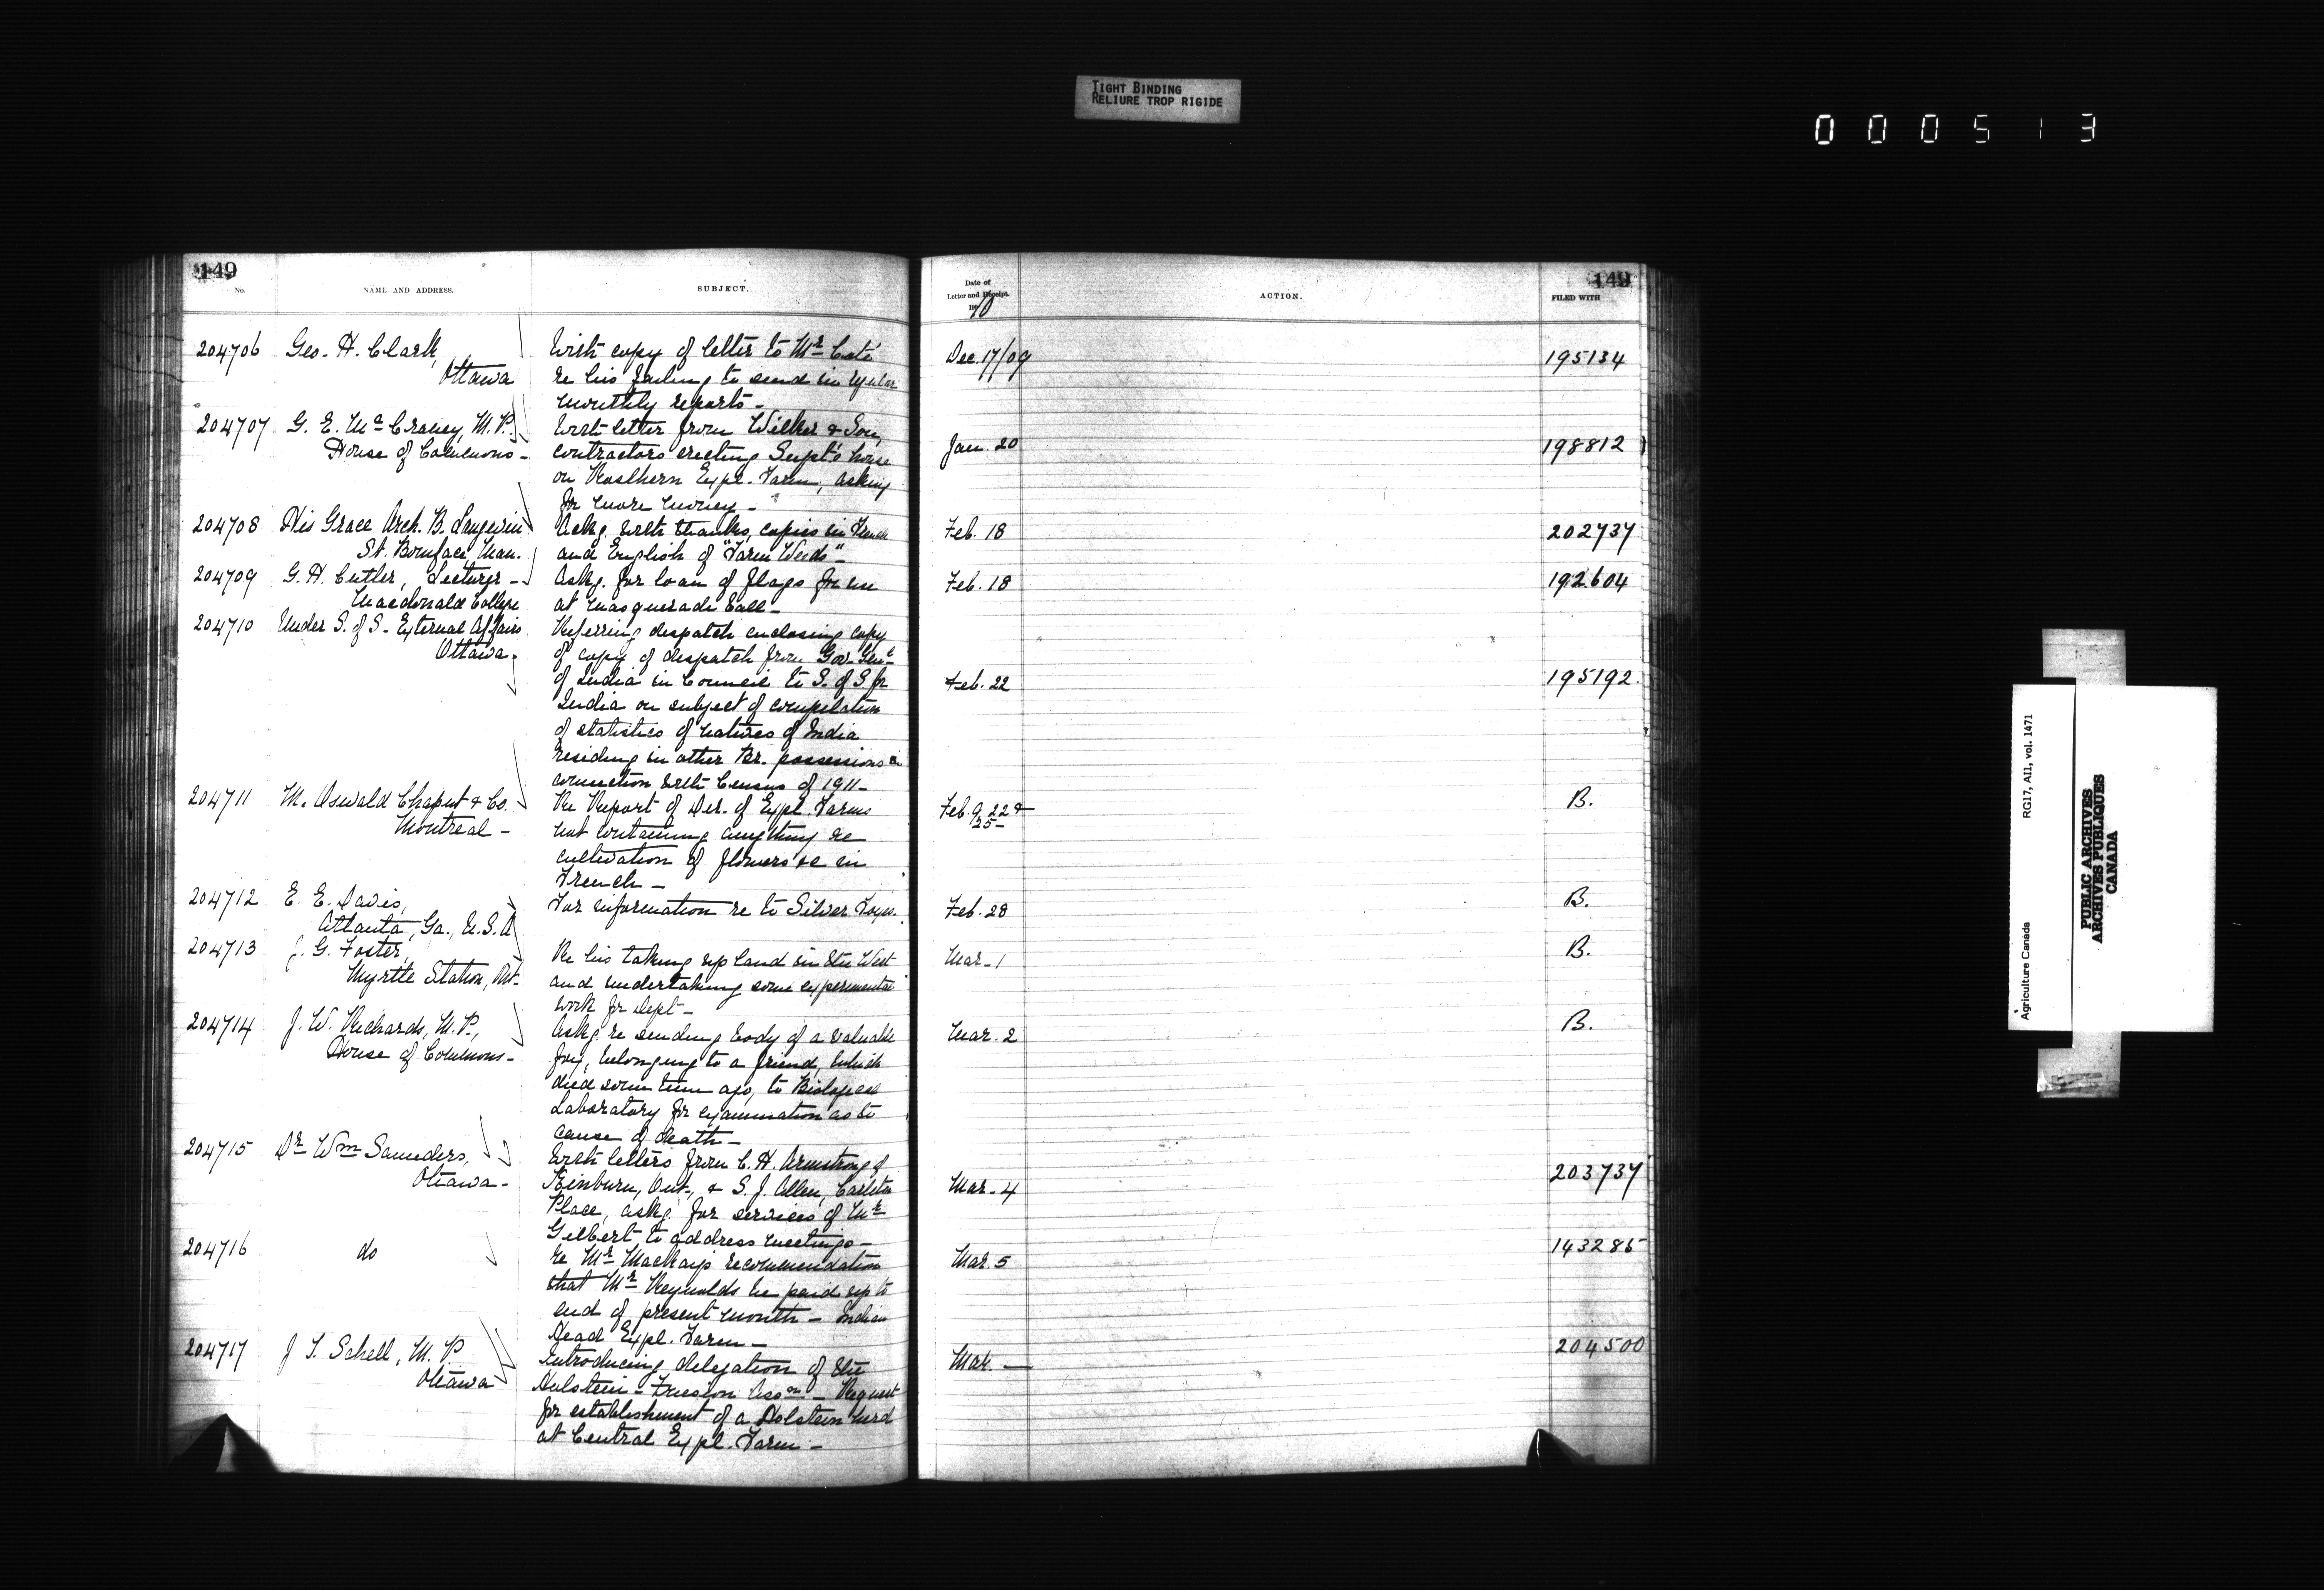 TIGHT BINDING
RELIURE TROP RIGIDE
000513
149
No.
NAME AND ADDRESS.
SUBJECT.
Date of
Letter and Receipt.
1910
ACTION.
149
FILED WITH
204706 Geo. H. Clark, With copy of letter to Mr Coté Dec. 17/09 195134
Ottawa re his failing to send in regular
monthly reports -
204707 G. E. McCraney, M.P. With letter from Wilker & Son,
House of Commons - contractors erecting Supt's house Jan. 20 198812
on Rosthern Expl. Farm, asking
for more money -
204708 His Grace Arch. B. Langevin Ackg. with thanks, copies in French Feb. 18 202737
St. Boniface, Man. and English of "Farm Weeds" -
204709 G. H. Cutler, Lecturer - Askg. for loan of flags for use Feb. 18 192604
Macdonald College at masquerade ball -
204710 Under S. of S. External Affairs Referring despatch enclosing copy
Ottawa. of copy of despatch from Gov. Gen't
of India in Council to S. of S. for Feb. 22 195192
India on subject of compilation
of statistics of natives of India
residing in other Br. possessions in
connection with Census of 1911 -
204711 M. Oswald Chaput & Co. Re Report of Dir. of Expl. Farms Feb. 9, 22 & B.
Montreal - not containing anything re 25 -
cultivation of flowers &c in
French -
204712 E. E. Davis, For information re to Silver Foxes. Feb. 28 B.
Atlanta, Ga., U.S.A
204713 J. G. Foster, Re his taking up land in the West Mar. 1 B.
Myrtle Station, Ont. and undertaking some experimental
work for Dept -
204714 J. W. Richards, M.P., Askg. re sending body of a valuable Mar. 2 B.
House of Commons - fox, belonging to a friend, which
died some time ago, to Biological
Laboratory for examination as to
cause of death -
204715 Dr Wm Saunders, With letters from C. H. Armstrong of
Ottawa - Kinburn, Ont., & S. J. Allen, Carleton Mar. 4 203737
Place, askg. for services of Mr
Gilbert to address meetings -
204716 do re Mr Mackay's recommendation Mar. 5 143285
that Mr Reynolds be paid up to
end of present month - Indian
Head Expl. Farm -
204717 J. T. Schell, M.P. Introducing delegation of the Mar. — 204500
Ottawa Holstein-Friesian Assn - Request
for establishment of a Holstein herd
at Central Expl. Farm -
Agriculture Canada RG17, AII, vol. 1471
PUBLIC ARCHIVES
ARCHIVES PUBLIQUES
CANADA